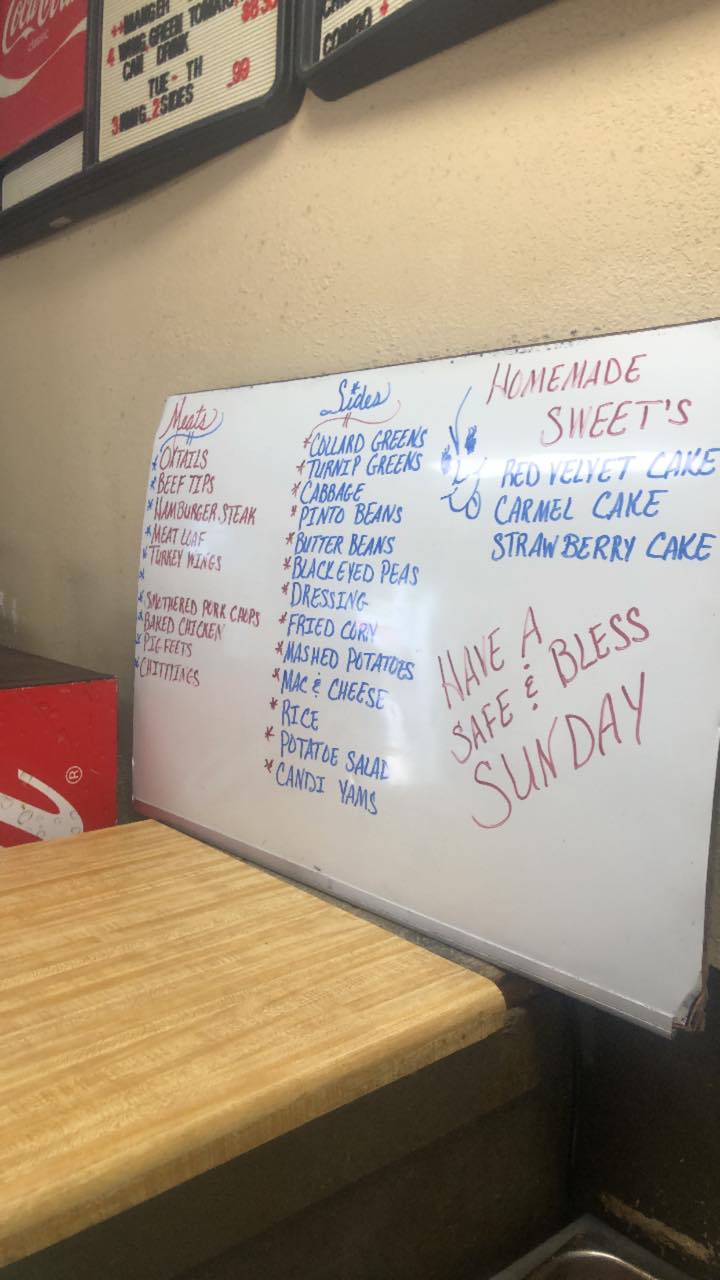 Coca-Cola
classic
**MANGER
4 WING, GREEN TOMATO, $8.
CAN DRINK
TUE - TH
3WNG, 2SIDES .99
COMBO *
Meats
* OXTAILS
* BEEF TIPS
* HAMBURGER STEAK
* MEAT LOAF
* TURKEY WINGS
*
* SMOTHERED PORK CHOPS
* BAKED CHICKEN
* PIG FEETS
* CHITTINGS
Sides
* COLLARD GREENS
* TURNIP GREENS
* CABBAGE
* PINTO BEANS
* BUTTER BEANS
* BLACK EYED PEAS
* DRESSING
* FRIED CORN
* MASHED POTATOES
* MAC & CHEESE
* RICE
* POTATOE SALAD
* CANDI YAMS
HOMEMADE
SWEET'S
RED VELVET CAKE
CARMEL CAKE
STRAWBERRY CAKE
HAVE A
SAFE & BLESS
SUNDAY
®